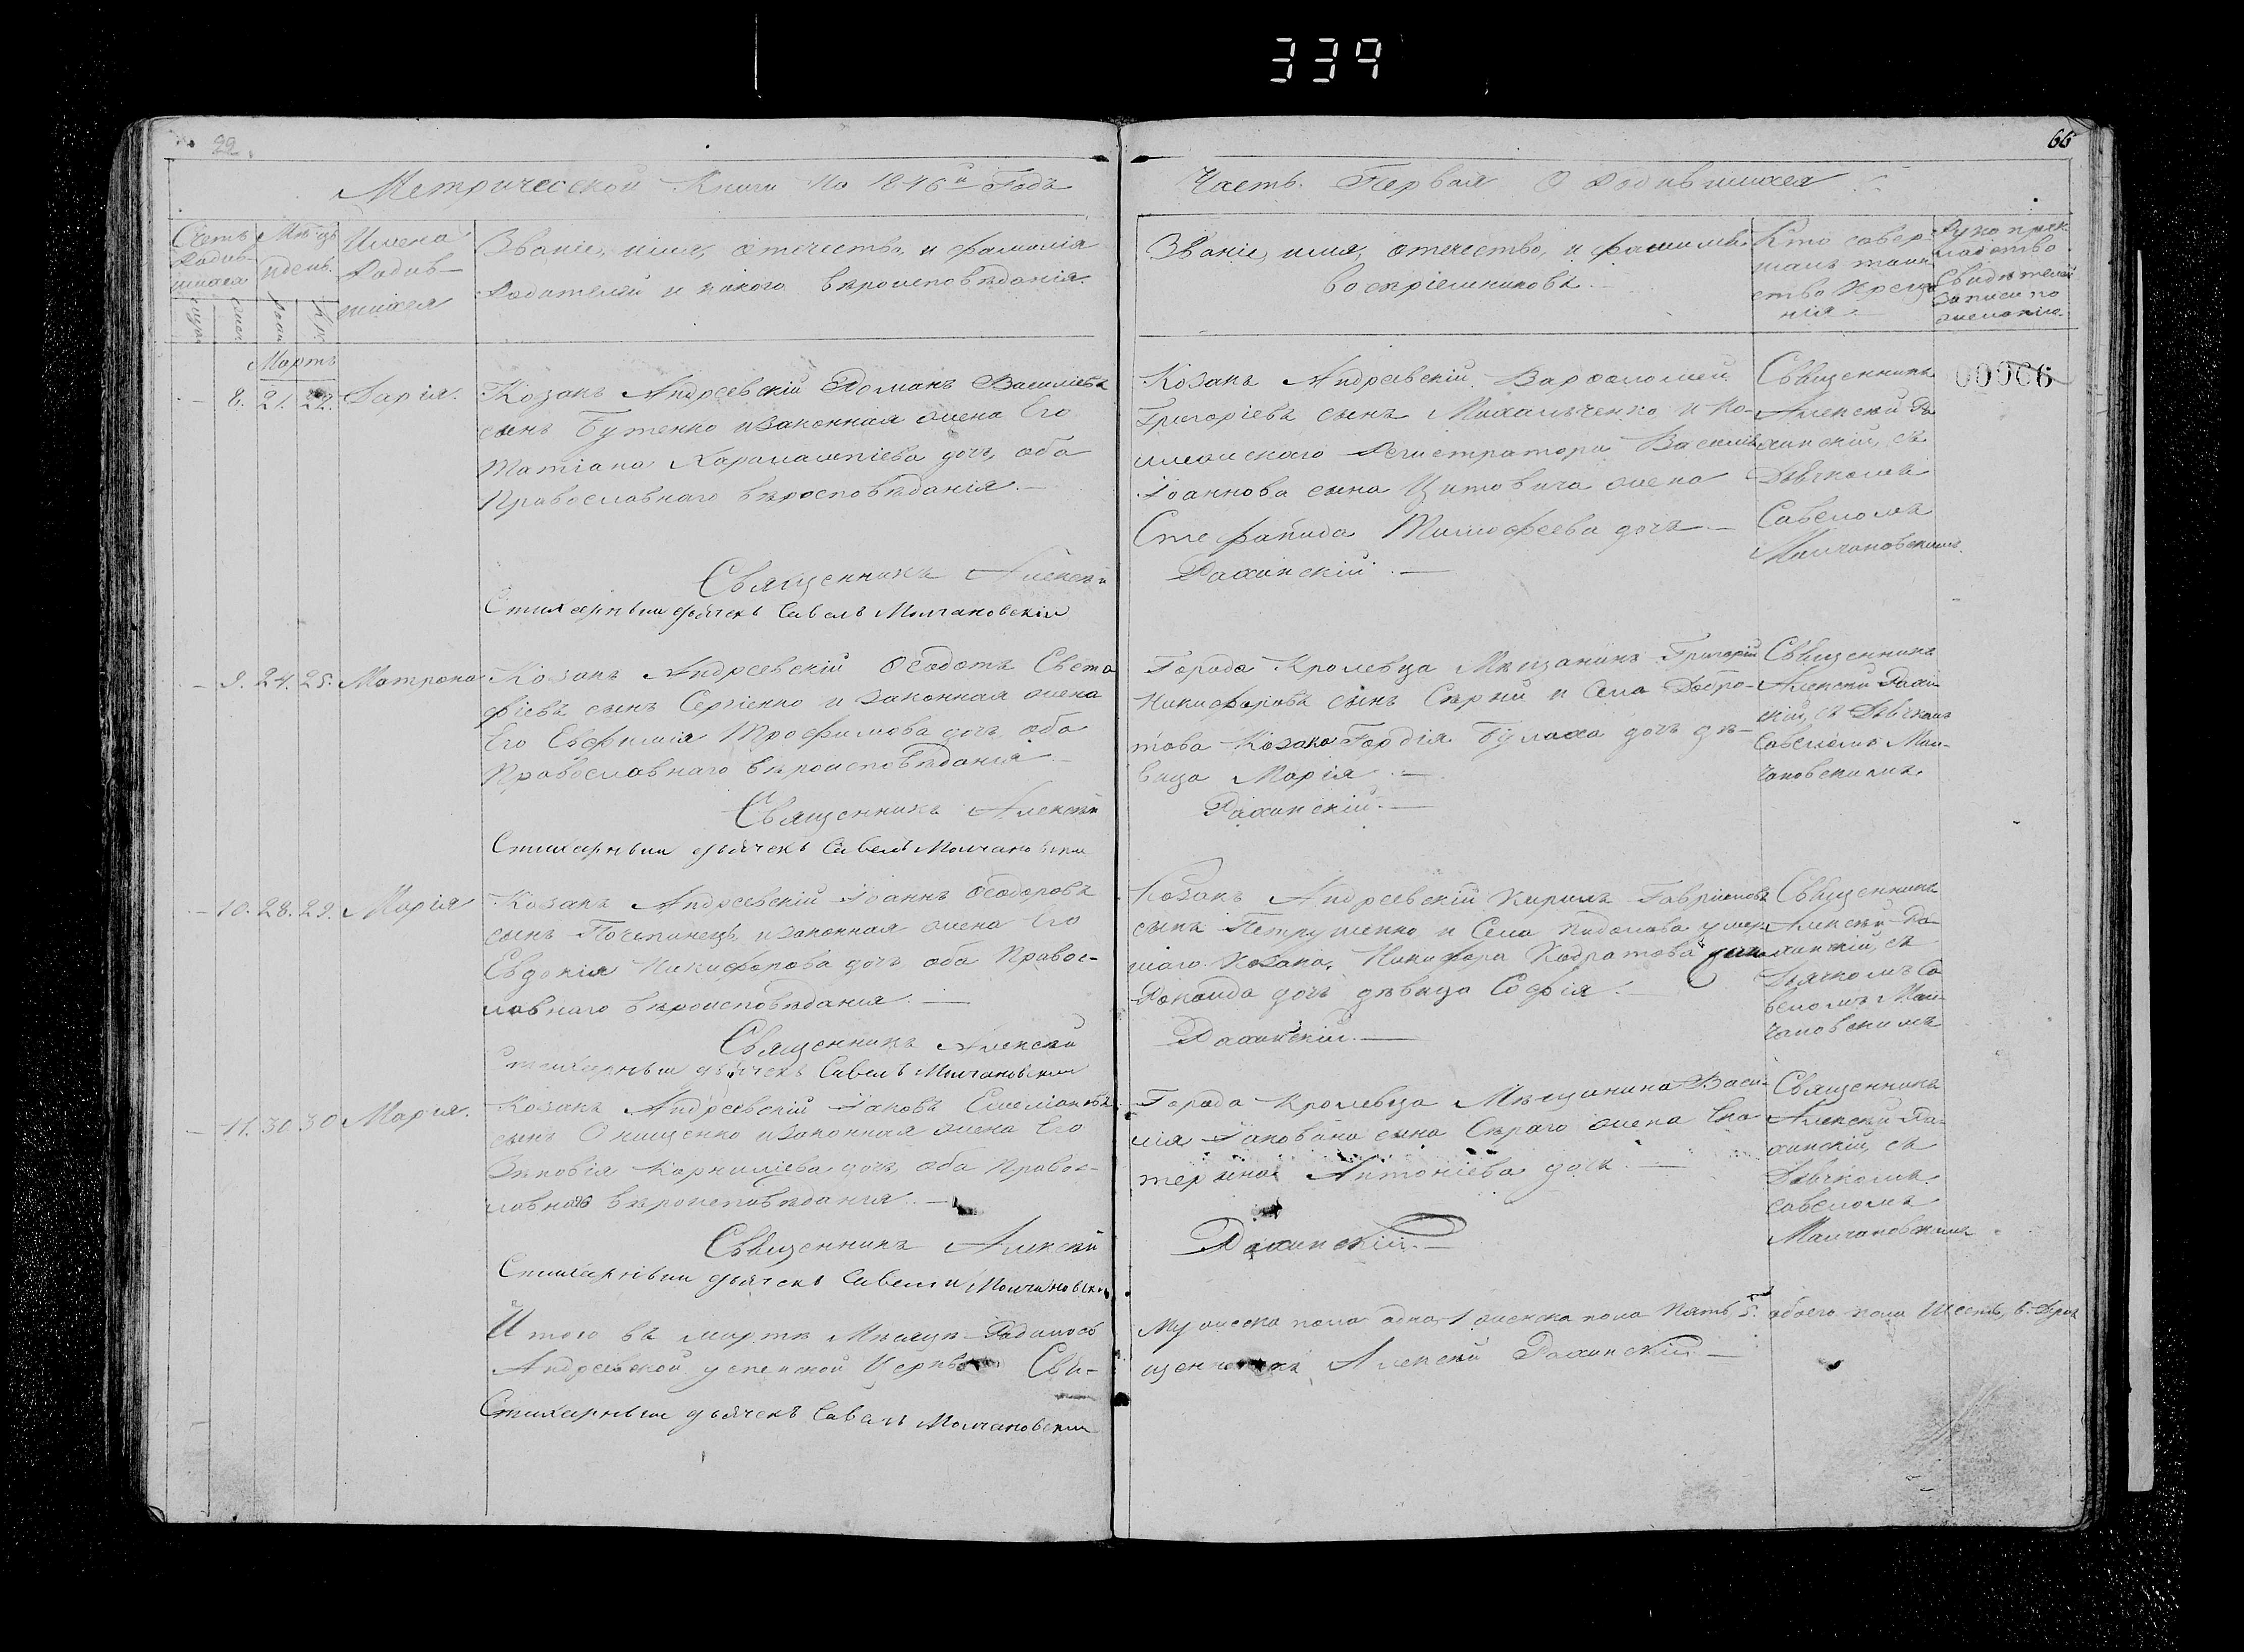 339
22.
66
Метрической Книги на 1846й Годъ
Часть Первая О Родившихся
Счетъ родив-шихся
Мѣ-цъ и день.
Имена Родив-шихся
Званіе, имя, отечество, и фамилія
Родителей и какого вѣроисповѣданія.
Званіе, имя, отечество, и фамилія
воспріемниковъ.
Кто совер-
шалъ таин
ство Креще
нія
Рукоприк
ладство
Свидѣтелей
записи по
желанію.
Мартъ
8. 21. 22. Дарія.
Козакъ Андреевскій Романъ Василіевъ
сынъ Бутенко и законная жена Его
Татіана Харалампіева дочь, оба
Православнаго вѣроисповѣданія.
Священникъ Алексѣй
Стихарный дьячекъ Савелъ Молчановскій
Козакъ Андреевскій Варфоломей
Григоріевъ сынъ Михальченко и Ко-
лежскаго Регистратора Василія
Іоаннова сына Цитовича жена
Стефанида Тимофеева дочь
Рахинскій.
Священникъ
Алексѣй Ра
хинскій, съ
Дьячкомъ
Савеломъ
Молчановскимъ.
00066
9. 24. 25. Матрона
Козакъ Андреевскій Ѳеодотъ Евста
фіевъ сынъ Сергіенко и законная жена
Его Евфимія Трофимова дочь оба
Православнаго вѣроисповѣданія
Священникъ Алексѣй
Стихарный дьячекъ Савелъ Молчановскій
Города Кролевца Мѣщанинъ Григорій
Никифоровъ сынъ Сѣрый и Села Добро-
това Козака Гордія Булаха дочь дѣ-
вица Марія.
Рахинскій.
Священникъ
Алексѣй Рахин
скій, съ Дьячкомъ
Савеломъ Мол-
чановскимъ.
10. 28. 29. Марія
Козакъ Андреевскій Іоаннъ Ѳеодоровъ
сынъ и законная жена Его
Евдокія Никифорова дочь оба Правос-
лавнаго вѣроисповѣданія.
Священникъ Алексѣй
Стихарный дьячекъ Савелъ Молчановскій
Козакъ Андреевскій Кирилъ Гавриловъ
сынъ Петрушенко и Села умер
шаго Козака, Никифора Кодратова сына
дочь дѣвица Софія.
Рахинскій.
Священникъ
Алексѣй Ра-
хинскій, съ
Дьячкомъ Са
веломъ Мол-
чановскимъ
11. 30 30 Марія.
Козакъ Андреевскій Іаковъ Емеліановъ
сынъ Онищенко и законная жена Его
Зѣновія Корниліева дочь, оба Правос-
лавнаго вѣроисповѣданія.
Священникъ Алексѣй
Стихарный дьячекъ Савелій Молчановскій
Города Кролевца Мѣщанина Васи-
лія Іаковлева сына Сѣраго жена Ека
терина Антоніева дочь.
Рахинскій.
Священникъ
Алексѣй Ра-
хинскій, съ
Дьячкомъ
Савеломъ
Молчановскимъ
Итого въ мартѣ Мѣсяцѣ Родилось
Мужеска пола одна 1 женска пола пять 5. обоего пола Шесть, 6.
Андреевской успенской Церкви Свя-
щенникъ Алексѣй Рахинскій.
Стихарный дьячекъ Савелъ Молчановскій